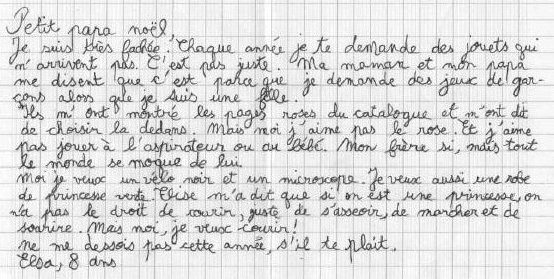 Petit papa noël,
Je suis très fachée. Chaque année je te demande des jouets qui
m'arrivent pas. C'est pas juste. Ma maman et mon papa
me disent que c'est parce que je demande des jeux de gar-
çons alors que je suis une fille.
Ils m'ont montré les pages roses du catalogue et m'ont dit
de choisir la dedans. Mais moi j'aime pas le rose. Et j'aime
pas jouer à l'aspirateur ou au bébé. Mon frère si, mais tout
le monde se moque de lui.
Moi je veux un vélo noir et un microscope. Je veux aussi une robe
de princesse verte. Elise m'a dit que si on est une princesse, on
n'a pas le droit de courir, juste de s'asseoir, de marcher et de
sourire. Mais moi, je veux courir!
ne me dessois pas cette année, s'il te plait.
Elsa, 8 ans